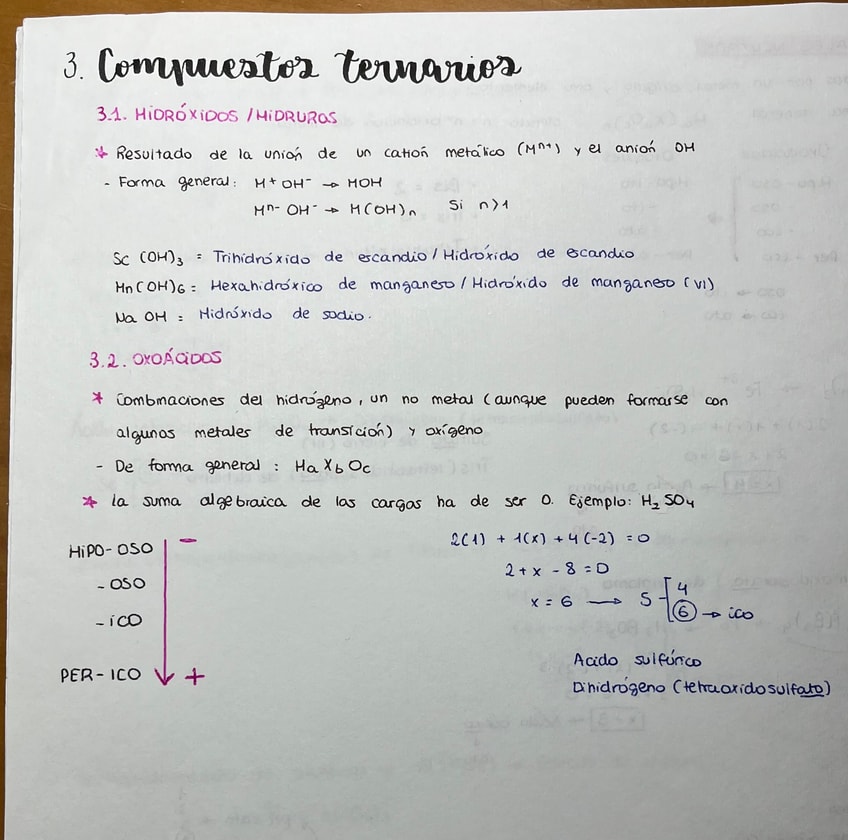 3. Compuestos ternarios
3.1. HIDRÓXIDOS / HIDRUROS
* Resultado de la unión de un catión metálico (Mⁿ⁺) y el anión OH
- Forma general: M+ OH⁻ → MOH
Mⁿ⁻ OH⁻ → M(OH)ₙ Si n>1
Sc (OH)₃ = Trihidróxido de escandio / Hidróxido de escandio
Mn(OH)₆ = Hexahidróxico de manganeso / Hidróxido de manganeso (VI)
Na OH = Hidróxido de sodio.
3.2. OXOÁCIDOS
* Combinaciones del hidrógeno, un no metal (aunque pueden formarse con
algunos metales de transición) y oxígeno
- De forma general : Ha Xb Oc
* La suma algebraica de las cargas ha de ser 0. Ejemplo: H₂ SO₄
HIPO-OSO −
- OSO
- ICO
PER- ICO +
2(1) + 1(x) + 4(-2) = 0
2 + x - 8 = 0
x = 6 → S 4
6 → ico
Acido sulfúrico
Dihidrógeno (tetraoxidosulfato)